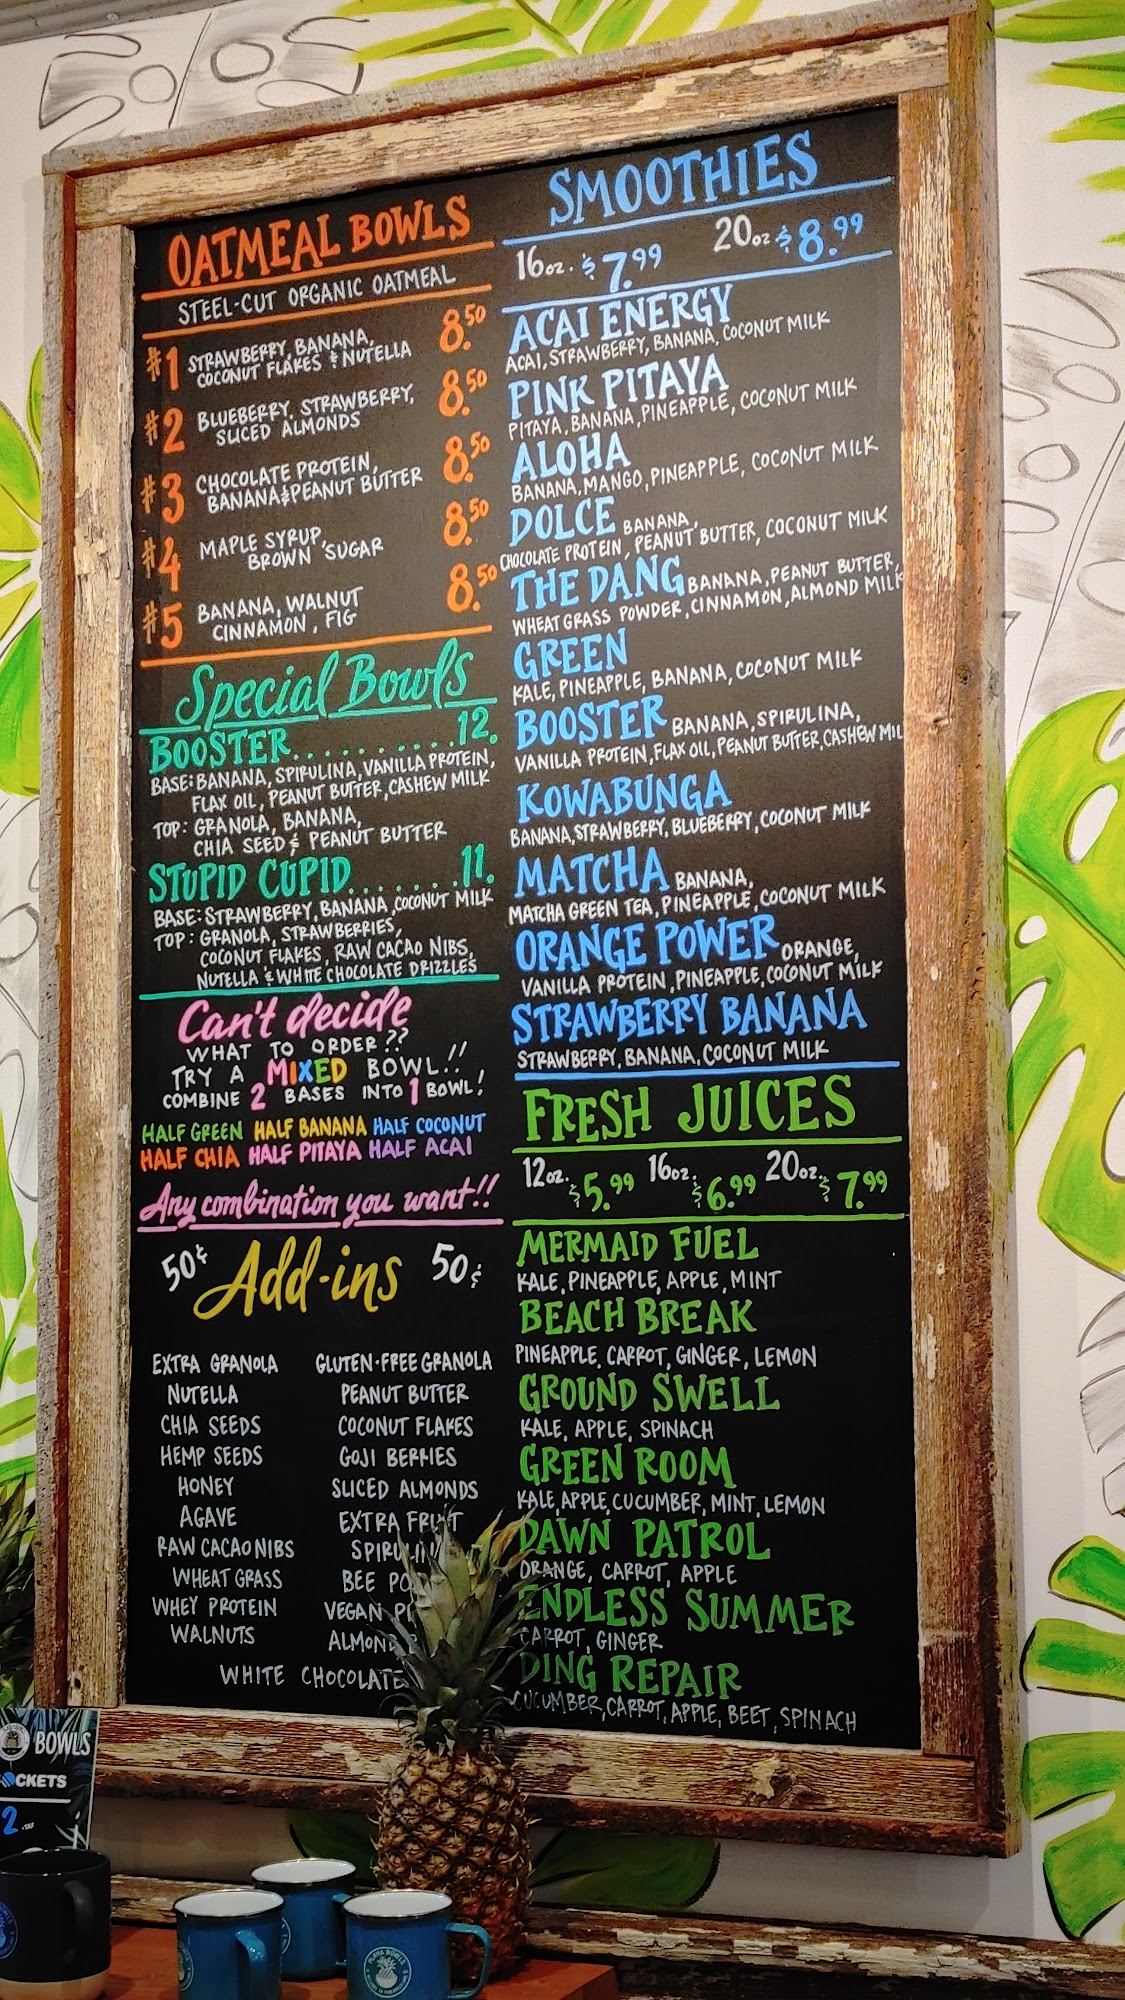 OATMEAL BOWLS
STEEL-CUT ORGANIC OATMEAL
#1 STRAWBERRY, BANANA, 8.50
COCONUT FLAKES & NUTELLA
#2 BLUEBERRY, STRAWBERRY, 8.50
SLICED ALMONDS
#3 CHOCOLATE PROTEIN, 8.50
BANANA & PEANUT BUTTER
#4 MAPLE SYRUP, 8.50
BROWN SUGAR
#5 BANANA, WALNUT 8.50
CINNAMON, FIG
Special Bowls
BOOSTER..........12.
BASE: BANANA, SPIRULINA, VANILLA PROTEIN,
FLAX OIL, PEANUT BUTTER, CASHEW MILK
TOP: GRANOLA, BANANA,
CHIA SEED & PEANUT BUTTER
STUPID CUPID.......11.
BASE: STRAWBERRY, BANANA, COCONUT MILK
TOP: GRANOLA, STRAWBERRIES,
COCONUT FLAKES, RAW CACAO NIBS,
NUTELLA & WHITE CHOCOLATE DRIZZLES
Can't decide
WHAT TO ORDER??
TRY A MIXED BOWL!!
COMBINE 2 BASES INTO 1 BOWL!
HALF GREEN HALF BANANA HALF COCONUT
HALF CHIA HALF PITAYA HALF ACAI
Any combination you want!!
50¢ Add-ins 50¢
EXTRA GRANOLA GLUTEN-FREE GRANOLA
NUTELLA PEANUT BUTTER
CHIA SEEDS COCONUT FLAKES
HEMP SEEDS GOJI BERRIES
HONEY SLICED ALMONDS
AGAVE EXTRA FRUIT
RAW CACAO NIBS
WHEAT GRASS BEE
WHEY PROTEIN VEGAN
WALNUTS
WHITE CHOCOLATE
SMOOTHIES
16oz. $7.99 20oz $8.99
ACAI ENERGY
ACAI, STRAWBERRY, BANANA, COCONUT MILK
PINK PITAYA
PITAYA, BANANA, PINEAPPLE, COCONUT MILK
ALOHA
BANANA, MANGO, PINEAPPLE, COCONUT MILK
DOLCE BANANA,
CHOCOLATE PROTEIN, PEANUT BUTTER, COCONUT MILK
THE DANG BANANA, PEANUT BUTTER,
WHEATGRASS POWDER, CINNAMON, ALMOND MILK
GREEN
KALE, PINEAPPLE, BANANA, COCONUT MILK
BOOSTER BANANA, SPIRULINA,
VANILLA PROTEIN, FLAX OIL, PEANUT BUTTER, CASHEW MIL
KOWABUNGA
BANANA, STRAWBERRY, BLUEBERRY, COCONUT MILK
MATCHA BANANA,
MATCHA GREEN TEA, PINEAPPLE, COCONUT MILK
ORANGE POWER ORANGE,
VANILLA PROTEIN, PINEAPPLE, COCONUT MILK
STRAWBERRY BANANA
STRAWBERRY, BANANA, COCONUT MILK
FRESH JUICES
12oz. $5.99 16oz. $6.99 20oz. $7.99
MERMAID FUEL
KALE, PINEAPPLE, APPLE, MINT
BEACH BREAK
PINEAPPLE, CARROT, GINGER, LEMON
GROUND SWELL
KALE, APPLE, SPINACH
GREEN ROOM
KALE, APPLE, CUCUMBER, MINT, LEMON
DAWN PATROL
ORANGE, CARROT, APPLE
ENDLESS SUMMER
CARROT, GINGER
DING REPAIR
CUCUMBER, CARROT, APPLE, BEET, SPINACH
BOWLS
2